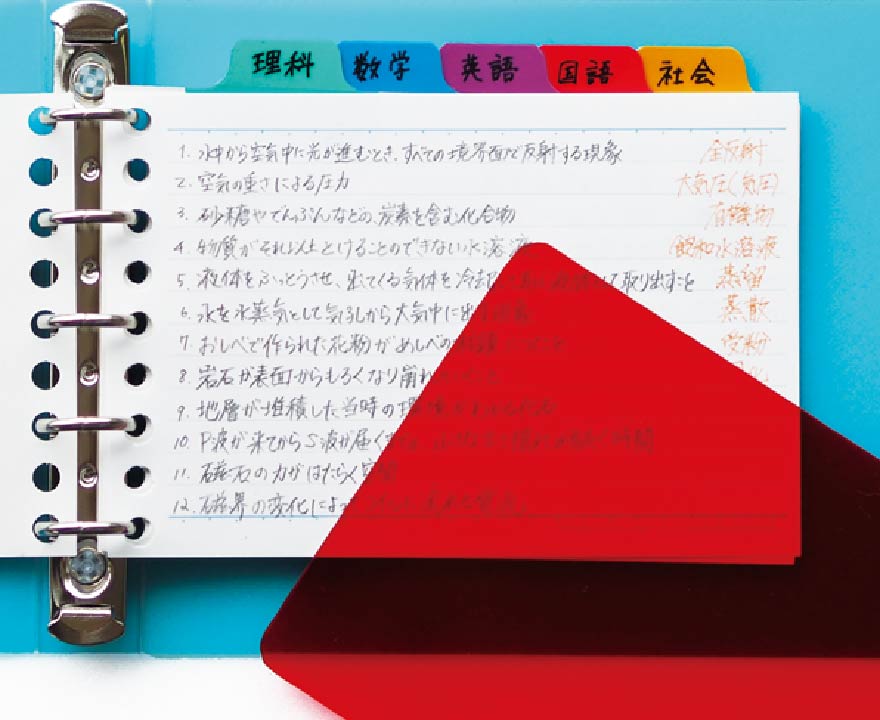 理科 数学 英語 国語 社会
1. 水中から空気中に光が進むとき、すべての境界面で反射する現象 全反射
2. 空気の重さによる圧力 大気圧(気圧)
3. 砂糖やでんぷんなどの、炭素を含む化合物 有機物
4. 物質がそれ以上とけることのできない水溶液 飽和水溶液
5. 液体をふっとうさせ、出てくる気体を冷却し て取り出すこと 蒸留
6. 水を水蒸気として気孔から大気中に出す 蒸散
7. おしべで作られた花粉がめしべの 受粉
8. 岩石が表面からもろくなり崩れ
9. 地層が堆積した当時の環境
10. P波が来てからS波が届く 時間
11. 磁石の力がはたらく空間
12. 磁界の変化によって